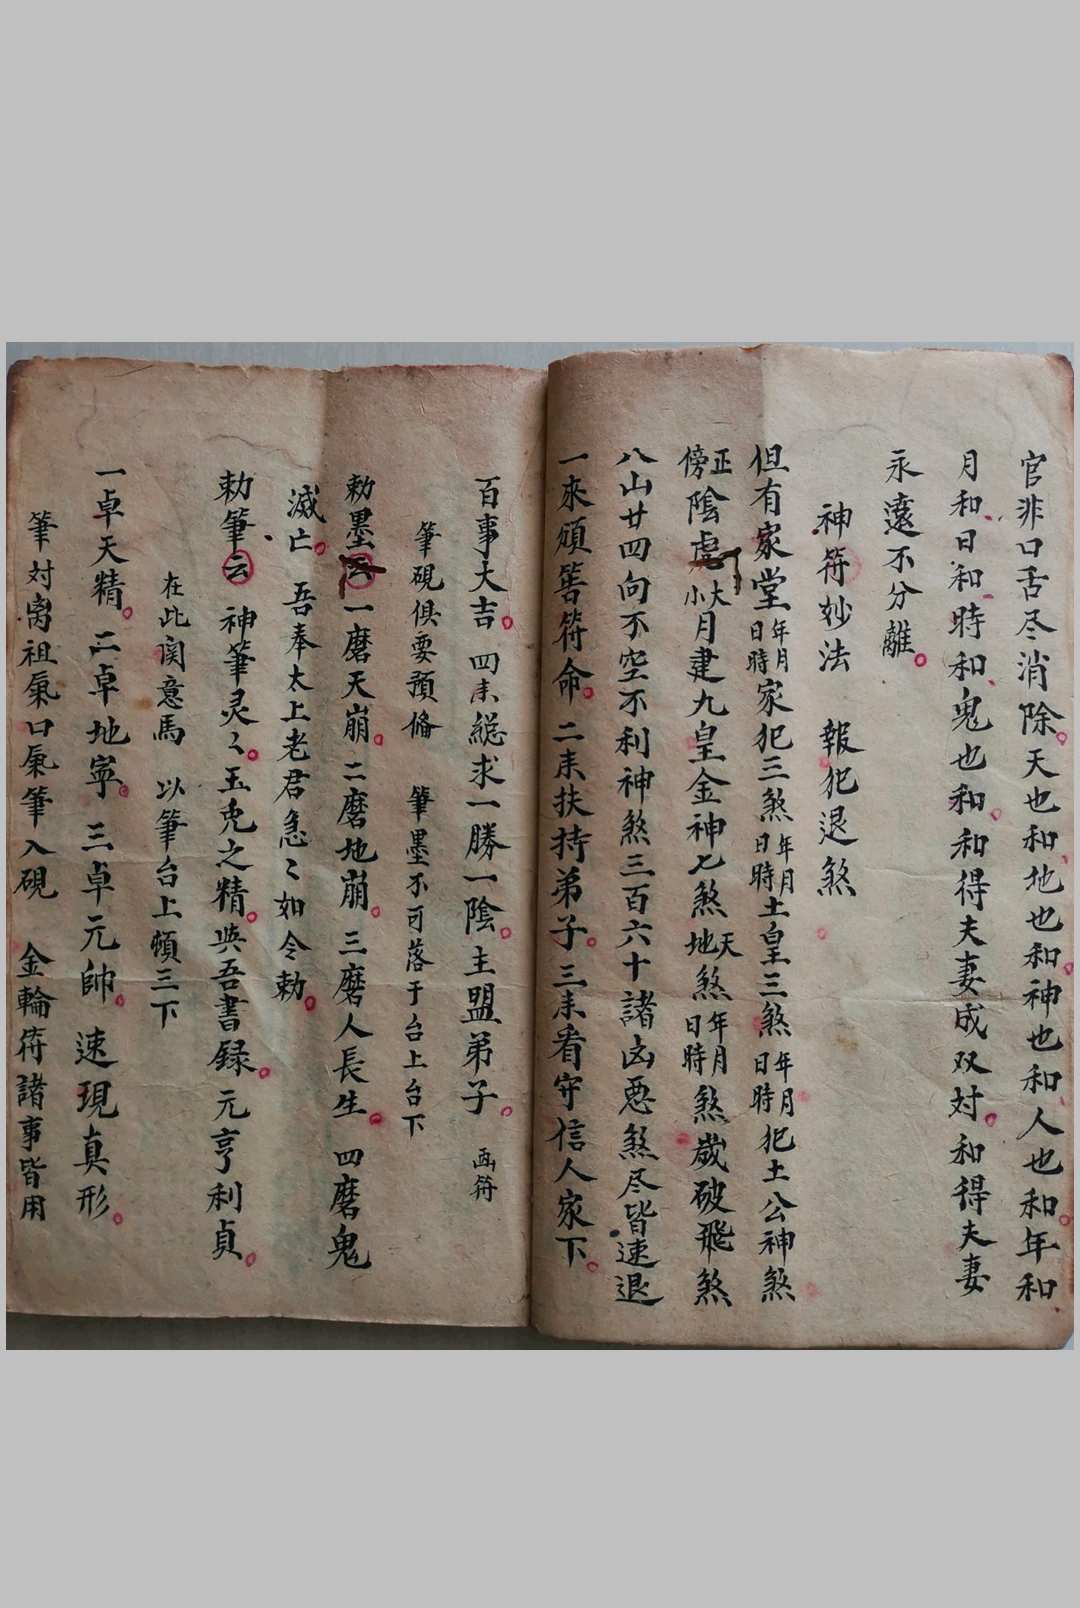 官非口舌尽消除天也和地也和神也和人也和年和
月和日和時和鬼也和和得夫妻成双対和得夫妻
永遠不分離
神符妙法 報犯退煞
但有家堂年月日時家犯三煞年月日時土皇三煞年月日時犯土公神煞
正傍陰處大小月建九皇金神七煞天地煞年月日時煞歲破飛煞
八山廿四向不空不利神煞三百六十諸凶惡煞尽皆速退
一來頒符命二来扶持弟子三来看守信人家下
百事大吉四来総求一勝一陰主盟弟子 画符
筆硯俱要預俻 筆墨不可落于台上台下
勅墨云一磨天崩二磨地崩三磨人長生四磨鬼
滅亡 吾奉太上老君急〻如令勅
勅筆云 神筆灵〻玉兎之精與吾書録元亨利貞
在此関意馬 以筆台上頓三下
一卓天精二卓地寧三卓元帥速現真形
筆対离祖氣口氣筆入硯 金輪符諸事皆用